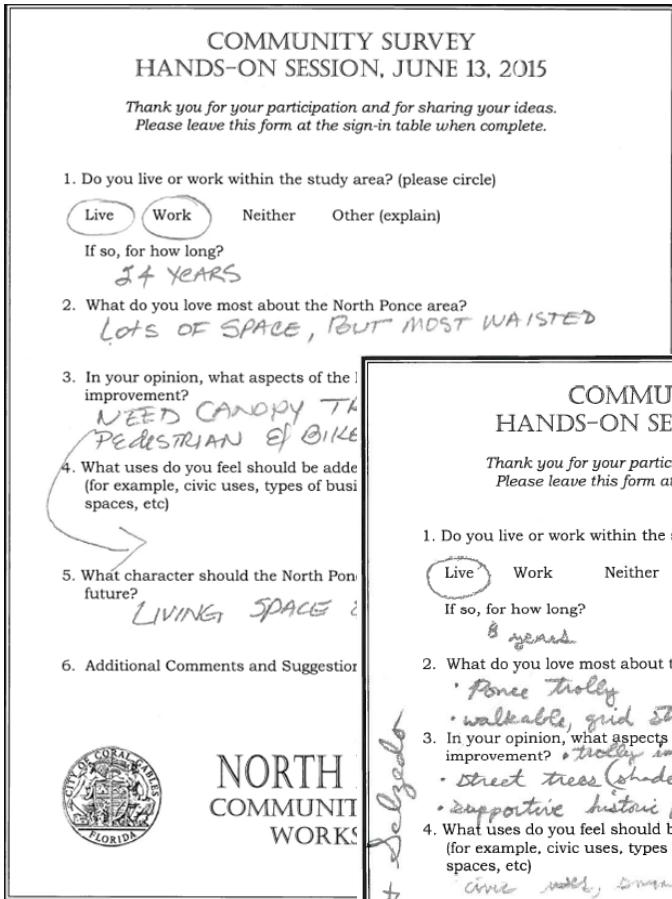 COMMUNITY SURVEY
HANDS-ON SESSION, JUNE 13, 2015
Thank you for your participation and for sharing your ideas.
Please leave this form at the sign-in table when complete.
1. Do you live or work within the study area? (please circle)
Live Work Neither Other (explain)
If so, for how long?
24 YEARS
2. What do you love most about the North Ponce area?
LOTS OF SPACE, BUT MOST WAISTED
3. In your opinion, what aspects of the
improvement?
NEED CANOPY
PEDESTRIAN & BIKE
4. What uses do you feel should be adde
(for example, civic uses, types of busi
spaces, etc)
5. What character should the North Pon
future?
LIVING SPACE
6. Additional Comments and Suggestion
CITY OF CORAL GABLES
FLORIDA
NORTH
COMMUNIT
WORKS
COMMU
HANDS-ON SE
Thank you for your partic
Please leave this form at
1. Do you live or work within the
Live Work Neither
If so, for how long?
8 years
2. What do you love most about t
• Ponce trolly
• walkable, grid
3. In your opinion, what aspects
improvement? • trolly
• street trees (shade
• supportive historic
4. What uses do you feel should b
(for example, civic uses, types
spaces, etc)
civic uses,
Salzedo